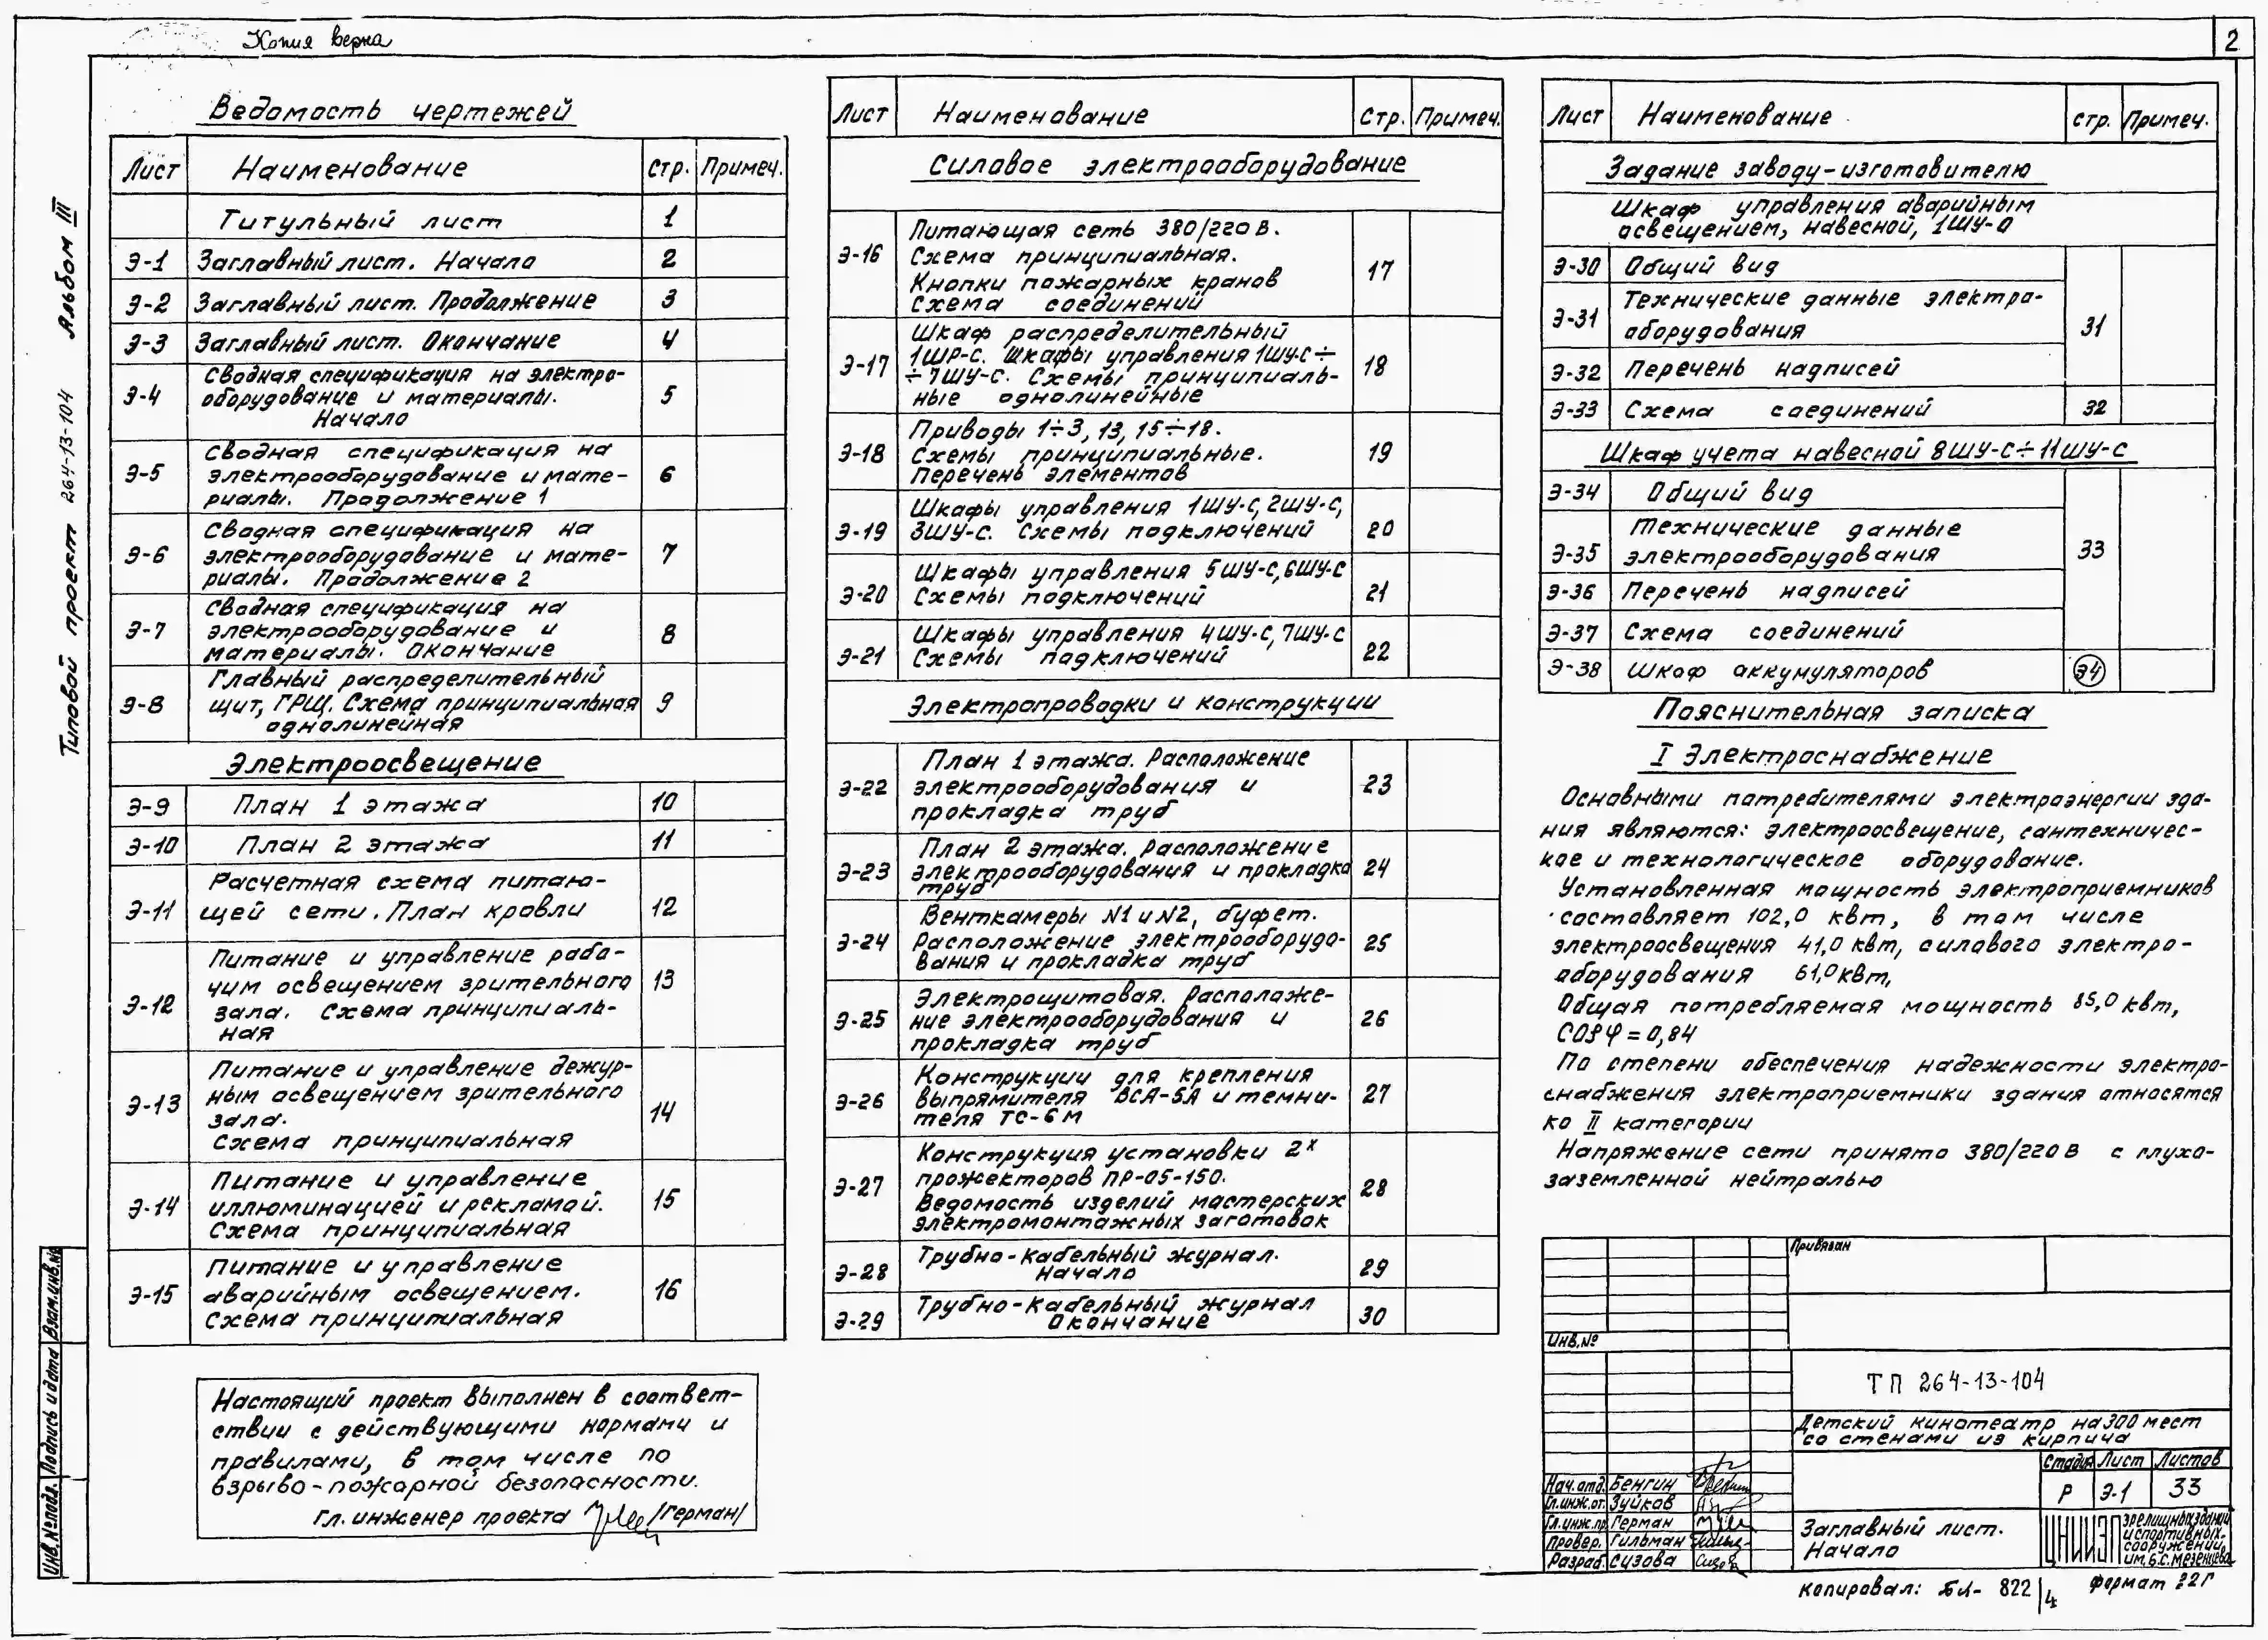 Копия верна
2
Типовой проект 264-13-104 Альбом III
Ведомость чертежей
Лист Наименование Стр. Примеч.
Титульный лист 1
Э-1 Заглавный лист. Начало 2
Э-2 Заглавный лист. Продолжение 3
Э-3 Заглавный лист. Окончание 4
Э-4 Сводная спецификация на электро-
оборудование и материалы. 5
Начало
Э-5 Сводная спецификация на
электрооборудование и мате- 6
риалы. Продолжение 1
Э-6 Сводная спецификация на
электрооборудование и мате- 7
риалы. Продолжение 2
Э-7 Сводная спецификация на
электрооборудование и 8
материалы. Окончание
Э-8 Главный распределительный
щит, ГРЩ. Схема принципиальная 9
однолинейная
Электроосвещение
Э-9 План 1 этажа 10
Э-10 План 2 этажа 11
Э-11 Расчетная схема питаю-
щей сети. План кровли 12
Э-12 Питание и управление рабо-
чим освещением зрительного 13
зала. Схема принципиаль-
ная
Э-13 Питание и управление дежур-
ным освещением зрительного
зала. 14
Схема принципиальная
Э-14 Питание и управление
иллюминацией и рекламой. 15
Схема принципиальная
Э-15 Питание и управление
аварийным освещением. 16
Схема принципиальная
Настоящий проект выполнен в соответ-
ствии с действующими нормами и
правилами, в том числе по
взрыво-пожарной безопасности.
Гл. инженер проекта /Герман/
Лист Наименование Стр. Примеч.
Силовое электрооборудование
Э-16 Питающая сеть 380/220 В.
Схема принципиальная. 17
Кнопки пожарных кранов
Схема соединений
Э-17 Шкаф распределительный
1ШР-С. Шкафы управления 1ШУ-С÷
÷7ШУ-С. Схемы принципиаль- 18
ные однолинейные
Э-18 Приводы 1÷3, 13, 15÷18.
Схемы принципиальные. 19
Перечень элементов
Э-19 Шкафы управления 1ШУ-С, 2ШУ-С,
3ШУ-С. Схемы подключений 20
Э-20 Шкафы управления 5ШУ-С, 6ШУ-С
Схемы подключений 21
Э-21 Шкафы управления 4ШУ-С, 7ШУ-С
Схемы подключений 22
Электропроводки и конструкции
Э-22 План 1 этажа. Расположение
электрооборудования и 23
прокладка труб
Э-23 План 2 этажа. Расположение
электрооборудования и прокладка 24
труб
Э-24 Венткамеры N1 и N2, буфет.
Расположение электрооборудо- 25
вания и прокладка труб
Э-25 Электрощитовая. Расположе-
ние электрооборудования и 26
прокладка труб
Э-26 Конструкции для крепления
выпрямителя ВСА-5А и темни- 27
теля ТС-6М
Э-27 Конструкция установки 2х
прожекторов ПР-05-150. 28
Ведомость изделий мастерских
электромонтажных заготовок
Э-28 Трубно-кабельный журнал. 29
Начало
Э-29 Трубно-кабельный журнал 30
Окончание
Лист Наименование Стр. Примеч.
Задание заводу-изготовителю
Шкаф управления аварийным
освещением, навесной, 1ШУ-О
Э-30 Общий вид
Э-31 Технические данные электро-
оборудования 31
Э-32 Перечень надписей
Э-33 Схема соединений 32
Шкаф учета навесной 8ШУ-С÷11ШУ-С
Э-34 Общий вид
Э-35 Технические данные
электрооборудования 33
Э-36 Перечень надписей
Э-37 Схема соединений
Э-38 Шкаф аккумуляторов 34
Пояснительная записка
I Электроснабжение
Основными потребителями электроэнергии зда-
ния являются: электроосвещение, сантехничес-
кое и технологическое оборудование.
Установленная мощность электроприемников
составляет 102,0 квт, в том числе
электроосвещения 41,0 квт, силового электро-
оборудования 61,0 квт,
Общая потребляемая мощность 85,0 квт,
cos φ = 0,84
По степени обеспечения надежности электро-
снабжения электроприемники здания относятся
ко II категории
Напряжение сети принято 380/220 В с глухо-
заземленной нейтралью
Привязан
Инв.№
ТП 264-13-104
Детский кинотеатр на 300 мест
со стенами из кирпича
Стадия Лист Листов
Р Э-1 33
Нач. отд. Бенгин
Гл.инж.от. Зуйков
Гл.инж.пр. Герман
Провер. Гильман
Разраб. Сизова
Заглавный лист.
Начало
ЦНИИЭП зрелищных зданий
и спортивных
сооружений
им. Б.С. Мезенцева
Копировал: 822/4 Формат 22Г
Инв.№подл. Подпись и дата Взам.инв.№